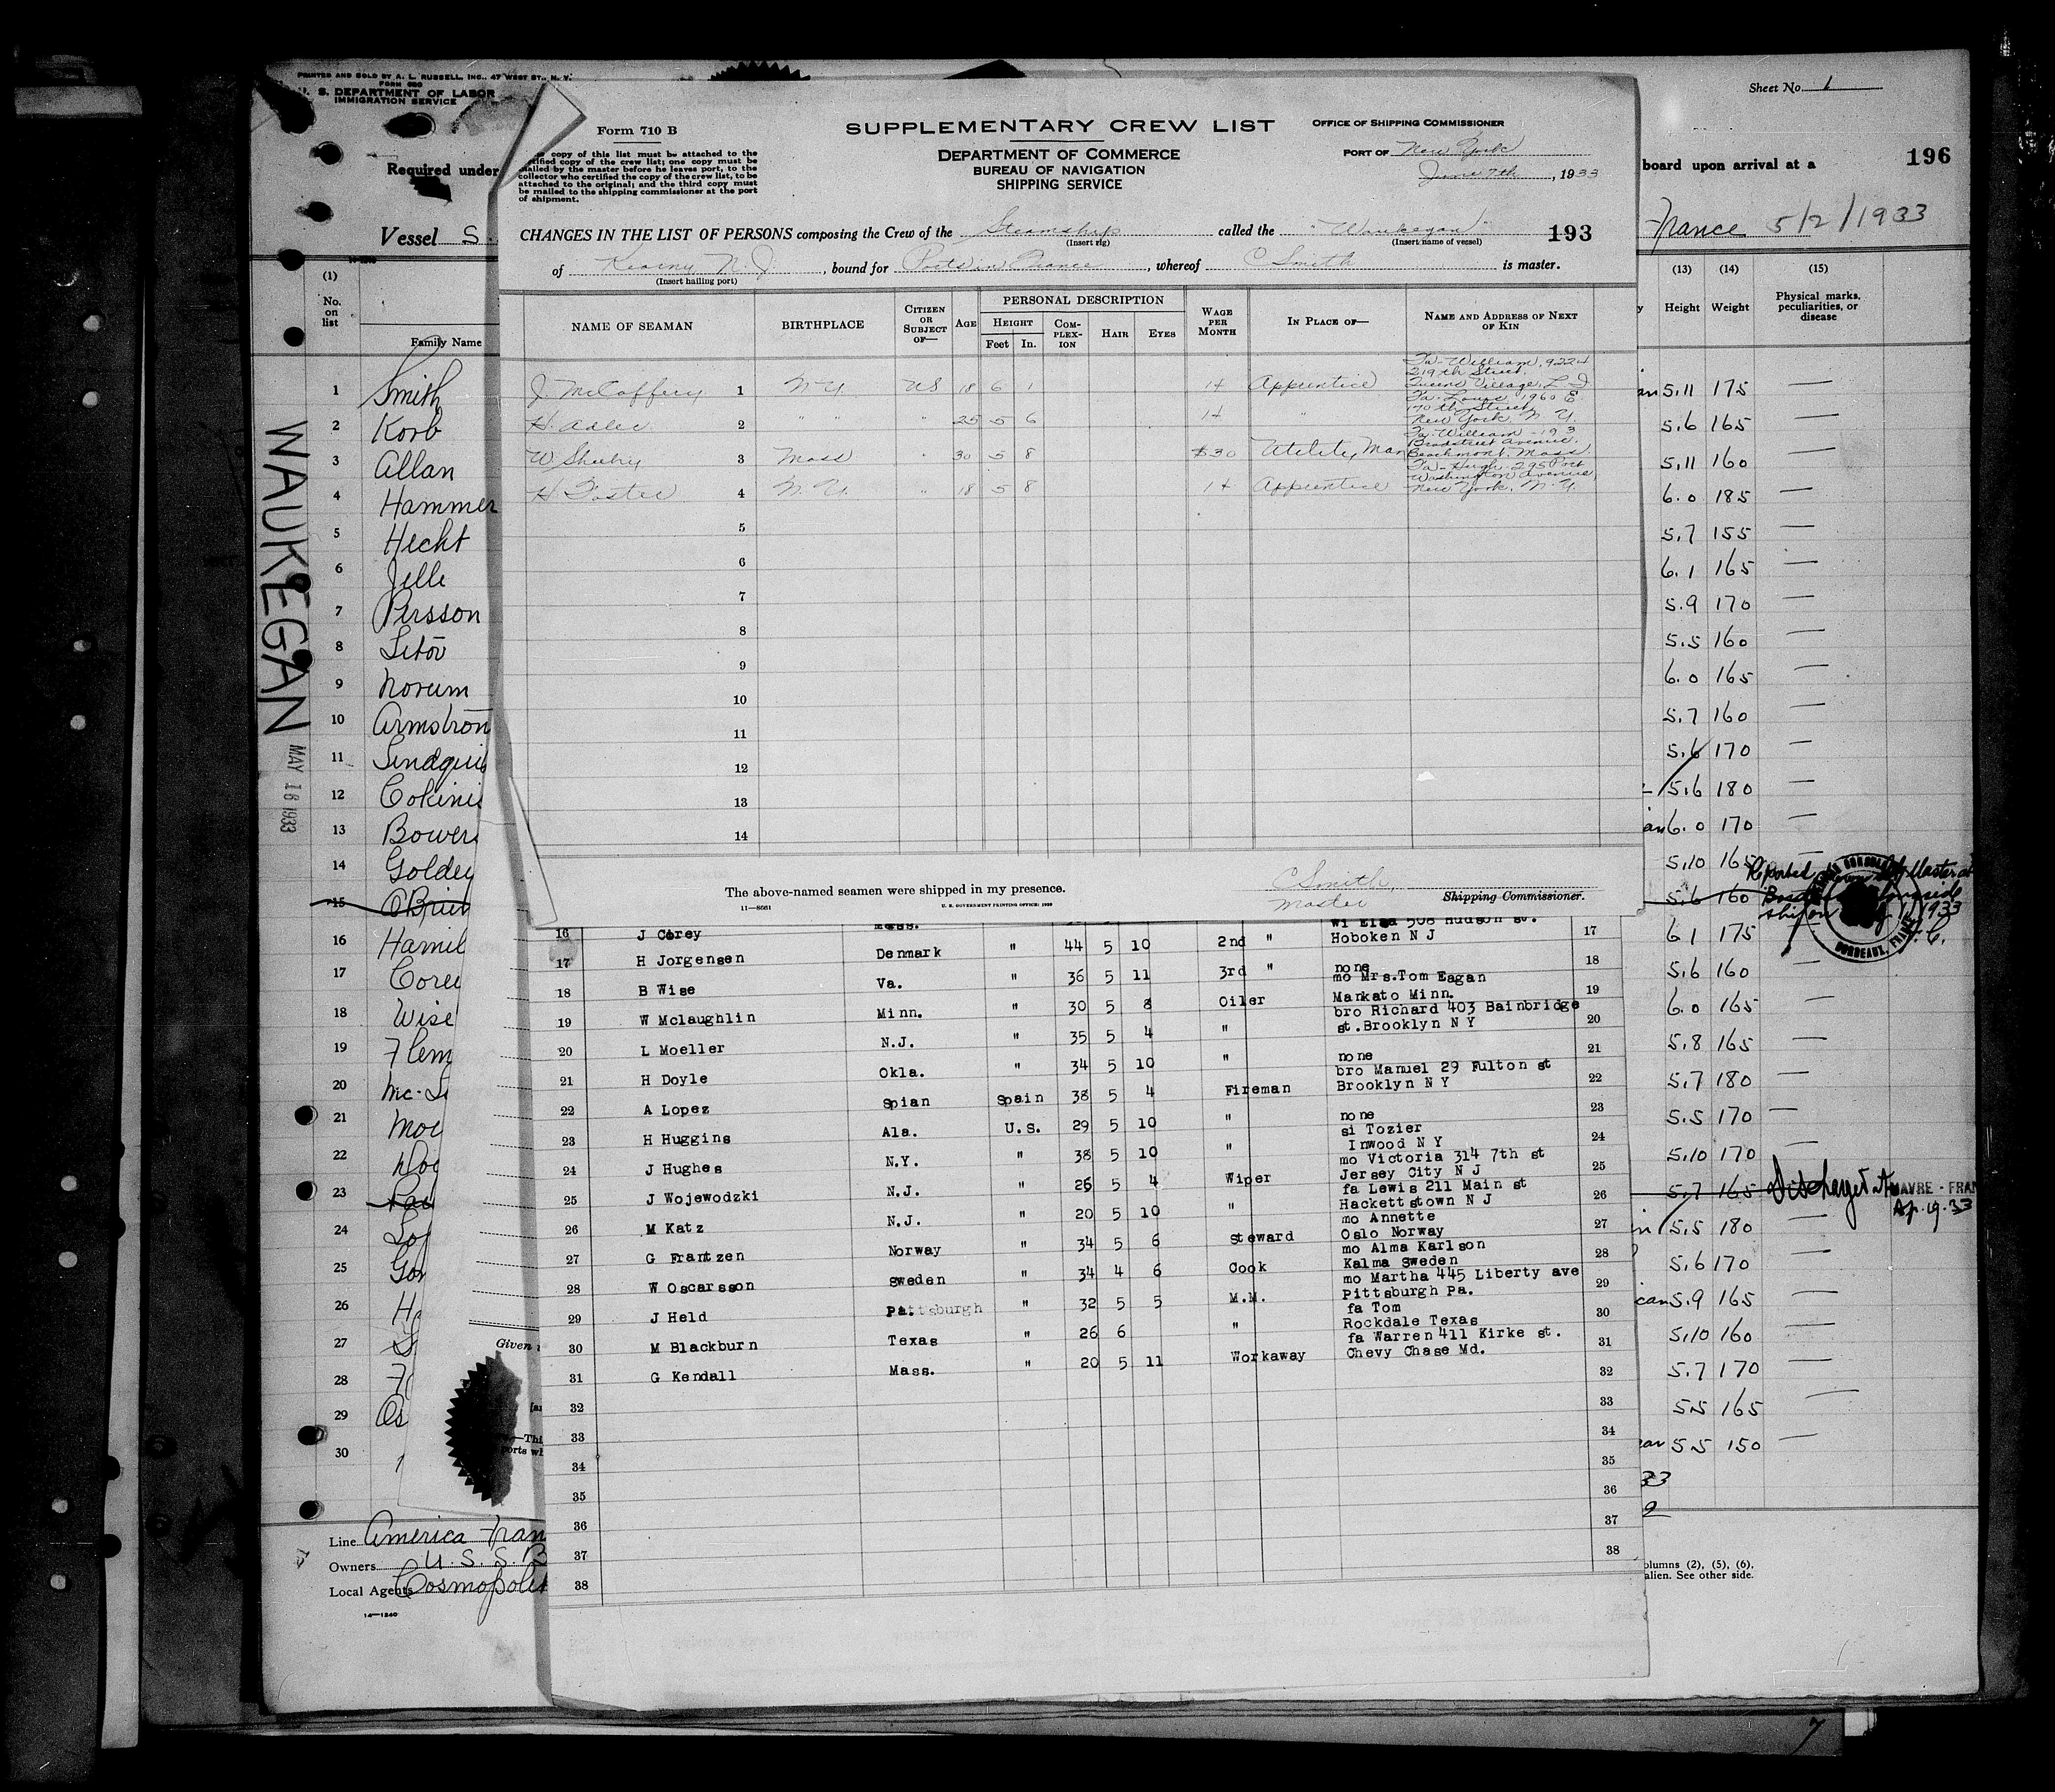 PRINTED AND SOLD BY A. L. RUSSELL, INC., 47 WEST ST., N. Y.
FORM 680
U. S. DEPARTMENT OF LABOR
IMMIGRATION SERVICE
Required under
Vessel S.
Sheet No. 1
board upon arrival at a
196
France 5/2/1933
Form 710 B
copy of this list must be attached to the
certified copy of the crew list; one copy must be
mailed by the master before he leaves port, to the
collector who certified the copy of the crew list, to be
attached to the original; and the third copy must
be mailed to the shipping commissioner at the port
of shipment.
SUPPLEMENTARY CREW LIST
DEPARTMENT OF COMMERCE
BUREAU OF NAVIGATION
SHIPPING SERVICE
OFFICE OF SHIPPING COMMISSIONER
PORT OF New York
June 7th, 1933
CHANGES IN THE LIST OF PERSONS composing the Crew of the Steamship called the "Waukegan" 193
(Insert rig) (Insert name of vessel)
of Kearny N. J., bound for Ports in France, whereof C Smith is master.
(Insert hailing port)
NAME OF SEAMAN BIRTHPLACE CITIZEN OR SUBJECT OF— AGE PERSONAL DESCRIPTION HEIGHT Feet In. COMPLEXION HAIR EYES WAGE PER MONTH IN PLACE OF— NAME AND ADDRESS OF NEXT OF KIN
J. McCaffery 1 N.Y. US 18 6 1 1¢ Apprentice Fa-William, 9224 219th Street, Queens Village, L. I
H. Adler 2 " " " 25 5 6 1¢ " Fa. Louis, 1960 E. 170th Street, New York, N. Y.
W Sheehy 3 Mass " 30 5 8 $30 Utility Man Fa-William-193 Bradstreet Avenue, Beachmont, Mass
H Foster 4 N.Y. " 18 5 8 1¢ Apprentice Fa-Hugh. 295 Fort Washington Avenue, New York, N.Y.
5
6
7
8
9
10
11
12
13
14
The above-named seamen were shipped in my presence.
C Smith,
Master
Shipping Commissioner.
11—8661 U. S. GOVERNMENT PRINTING OFFICE: 1930
WAUKEGAN
MAY 16 1933
(1)
No. on list
Family Name
1 Smith
2 Korb
3 Allan
4 Hammer
5 Hecht
6 Jelle
7 Persson
8
9 Norum
10 Armstron
11 Lindqui
12 Cokini
13 Bower
14 Golde
15 O'Brien
16 Hamil
17 Core
18 Wise
19 Flem
20 Mc-L
21 Moe
22 Do
23
24 Lo
25 Go
26 H
27
28 F
29 Os
30
Given
Line America Fran
Owners U. S. S. B
Local Agents Cosmopolit
14—1240
16 J Corey Mass. Wi Elsa 508 Hudson st.
17 H Jorgensen Denmark " 44 5 10 2nd " Hoboken N J 17
18 B Wise Va. " 36 5 11 3rd " none 18
19 W Mclaughlin Minn. " 30 5 8 Oiler mo Mrs.Tom Eagan Mankato Minn. 19
20 L Moeller N.J. " 35 5 4 " bro Richard 403 Bainbridge st.Brooklyn N Y 20
21 H Doyle Okla. " 34 5 10 " none 21
22 A Lopez Spian Spain 38 5 4 Fireman bro Manuel 29 Fulton st Brooklyn N Y 22
23 H Huggins Ala. U.S. 29 5 10 " none 23
24 J Hughes N.Y. " 38 5 10 " si Tozier Inwood N Y 24
25 J Wojewodzki N.J. " 26 5 4 Wiper mo Victoria 314 7th st Jersey City N J 25
26 M Katz N.J. " 20 5 10 " fa Lewis 211 Main st Hackettstown N J 26
27 G Frantzen Norway " 34 5 6 Steward mo Annette Oslo Norway 27
28 W Oscarsson Sweden " 34 4 6 Cook mo Alma Karlson Kalma Sweden 28
29 J Held Pattsburgh " 32 5 5 M.M. mo Martha 445 Liberty ave Pittsburgh Pa. 29
30 M Blackburn Texas " 26 6 " fa Tom Rockdale Texas 30
31 G Kendall Mass. " 20 5 11 Workaway fa Warren 411 Kirke st. Chevy Chase Md. 31
32 32
33 33
34 34
35 35
36 36
37 37
38 38
(13) (14) (15)
Height Weight Physical marks, peculiarities, or disease
5.11 175 —
5.6 165 —
5.11 160 —
6.0 185 —
5.7 155 —
6.1 165 —
5.9 170 —
5.5 160 —
6.0 165 —
5.7 160 —
5.6 170 —
5.6 180 —
6.0 170 —
5.10 165
5.6 160
6 1 175
5.6 160 —
6.0 165 —
5.8 165 —
5.7 180 —
5.5 170 —
5.10 170 —
5.7 165 Discharged at HAVRE - FRAN Ap. 19. 33
5.5 180 —
5.6 170 —
5.9 165 —
5.10 160 —
5.7 170 —
5.5 165 —
5.5 150 —
33
2
Reported by Master
alongside
ship on 1933
BORDEAUX, FRANCE
olumns (2), (5), (6),
alien. See other side.
7